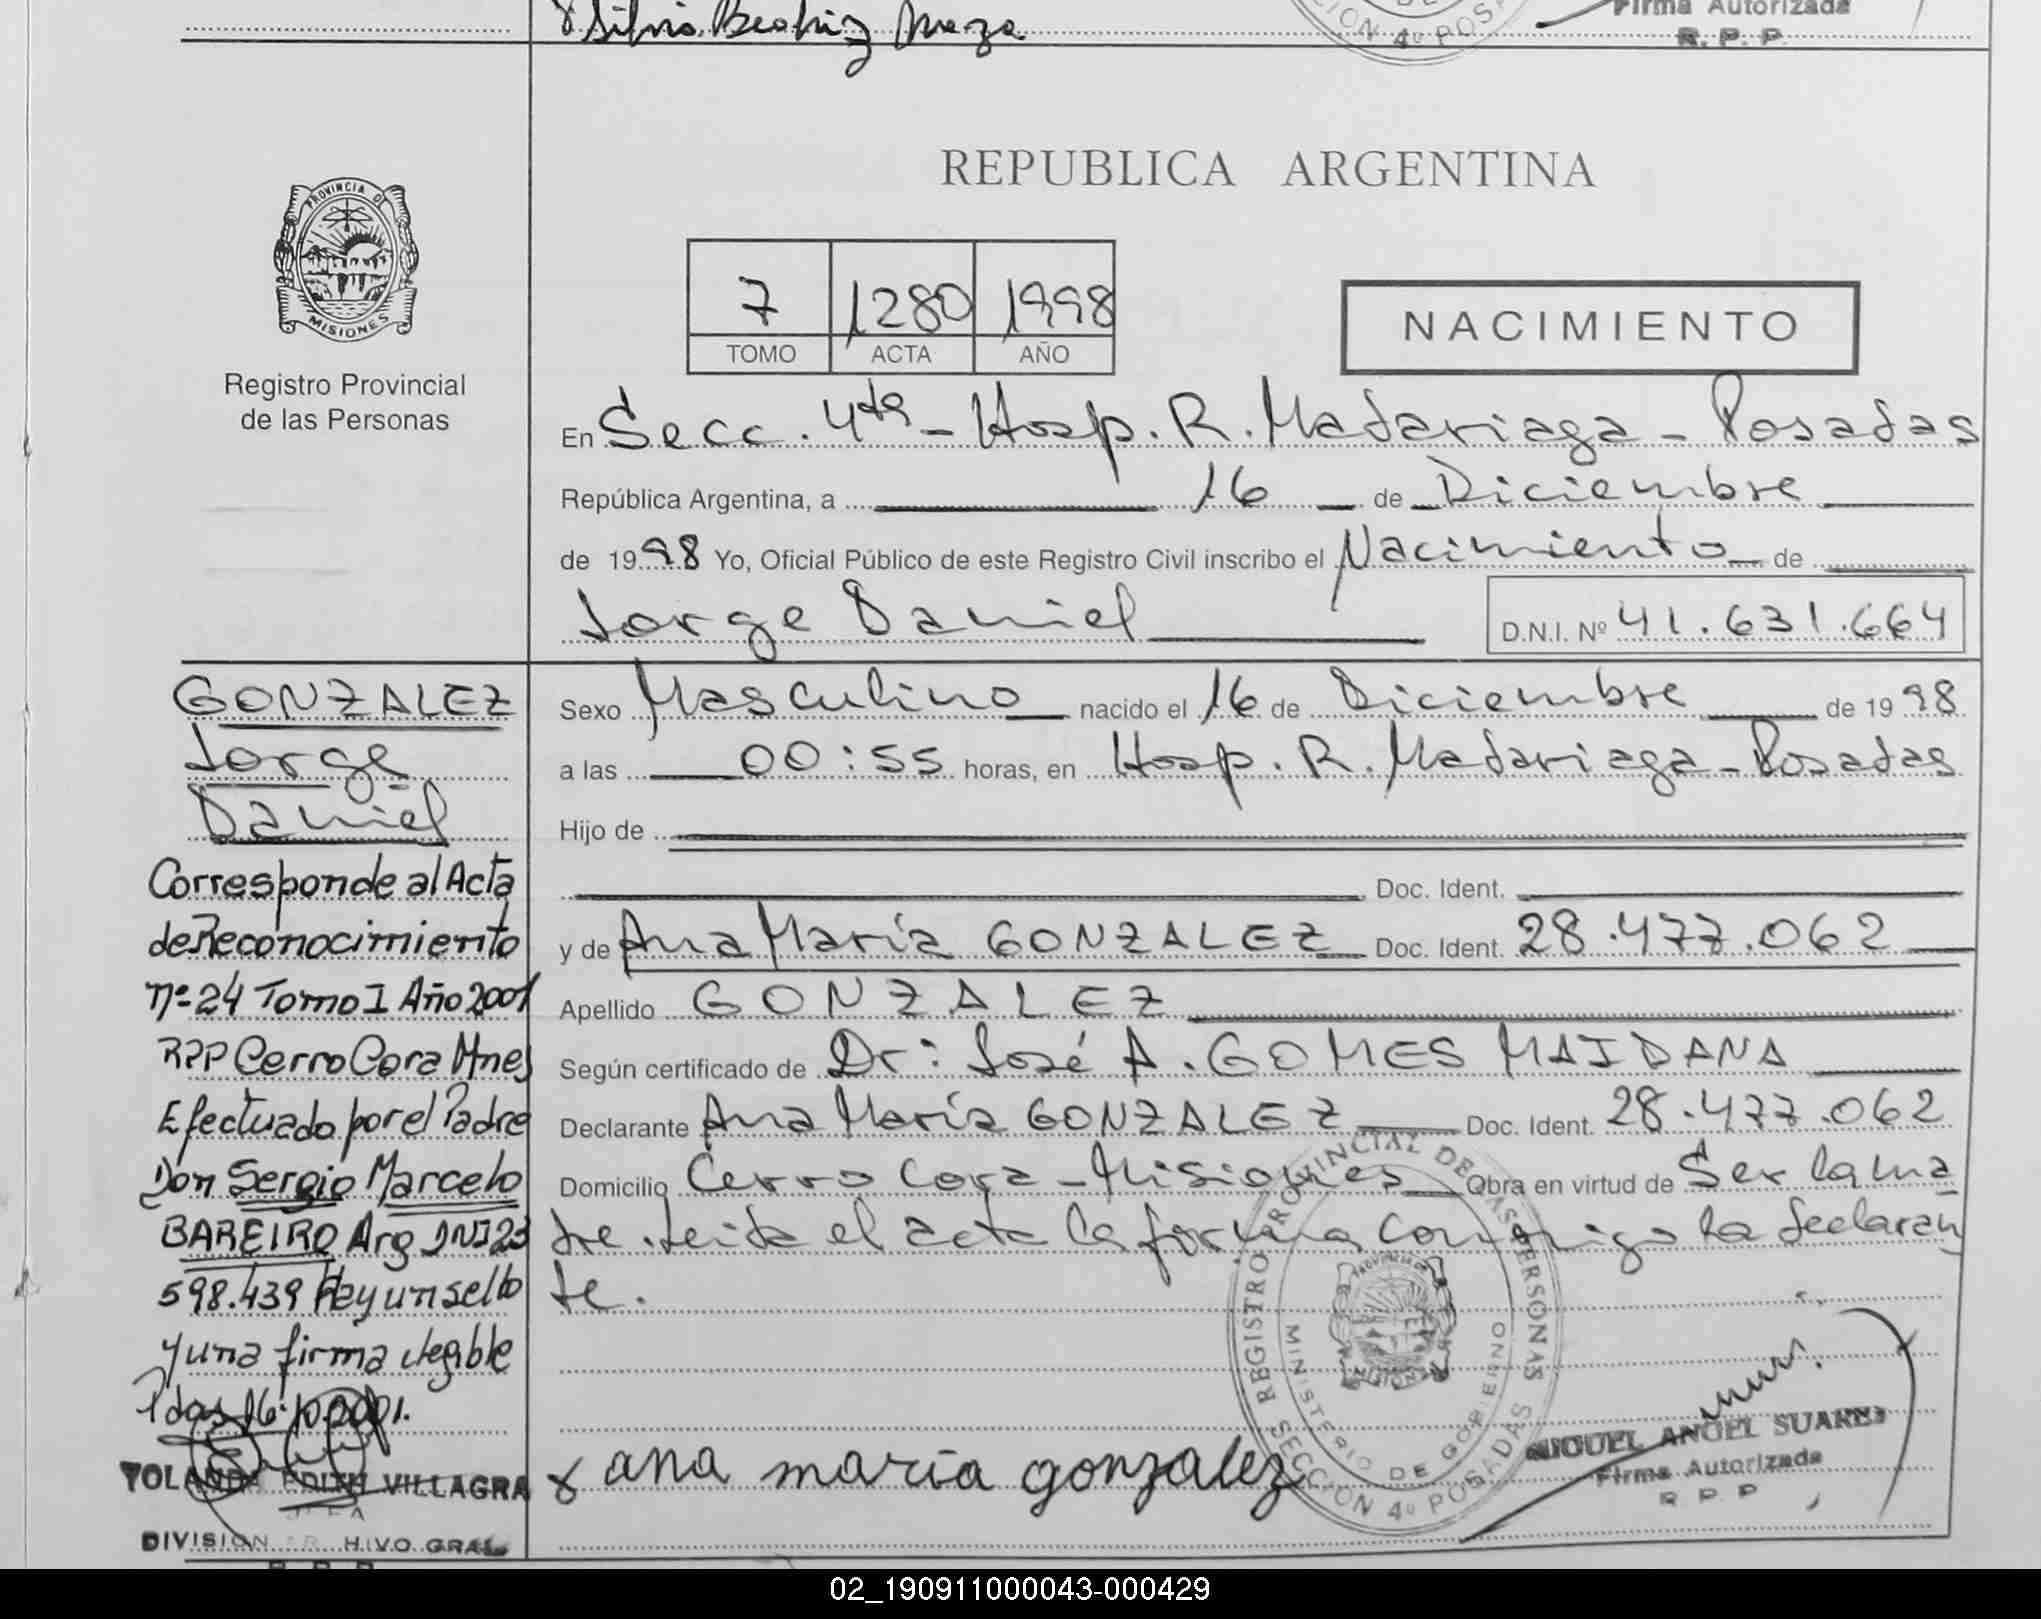 Silvia Beatriz Meza
Firma Autorizada
R. P. P.
REPUBLICA ARGENTINA
PROVINCIA DE
MISIONES
Registro Provincial
de las Personas
7 1280 1998
TOMO ACTA AÑO
NACIMIENTO
En Secc. 4ta - Hosp. R. Madariaga - Posadas
República Argentina, a 16 de Diciembre
de 1998 Yo, Oficial Público de este Registro Civil inscribo el Nacimiento de
Jorge Daniel D.N.I. Nº 41.631.664
GONZALEZ
Jorge
Daniel
Corresponde al Acta
de Reconocimiento
nº 24 Tomo I Año 2001
RPP Cerro Cora Mnes
Efectuado por el Padre
Don Sergio Marcelo
BAREIRO Arg DNI 23
598.439 Hay un sello
y una firma ilegible
Pdas 16.10.2001.
YOLANDA EDITH VILLAGRA
JEFA
DIVISION ARCHIVO GRAL
R. P. P.
Sexo Masculino nacido el 16 de Diciembre de 1998
a las 00:55 horas, en Hosp. R. Madariaga - Posadas
Hijo de
Doc. Ident.
y de Ana María GONZALEZ Doc. Ident. 28.477.062
Apellido GONZALEZ
Según certificado de Dr: José A. GOMES MAIDANA
Declarante Ana María GONZALEZ Doc. Ident. 28.477.062
Domicilio Cerro Cora - Misiones Obra en virtud de Ser la ma
dre. Leída el acta la forma conmigo la declaran
te.
REGISTRO PROVINCIAL DE LAS PERSONAS
SECCION 4ª POSADAS
MINISTERIO DE GOBIERNO
MISIONES
ana maria gonzalez
MIGUEL ANGEL SUAREZ
Firma Autorizada
R P P
02_190911000043-000429